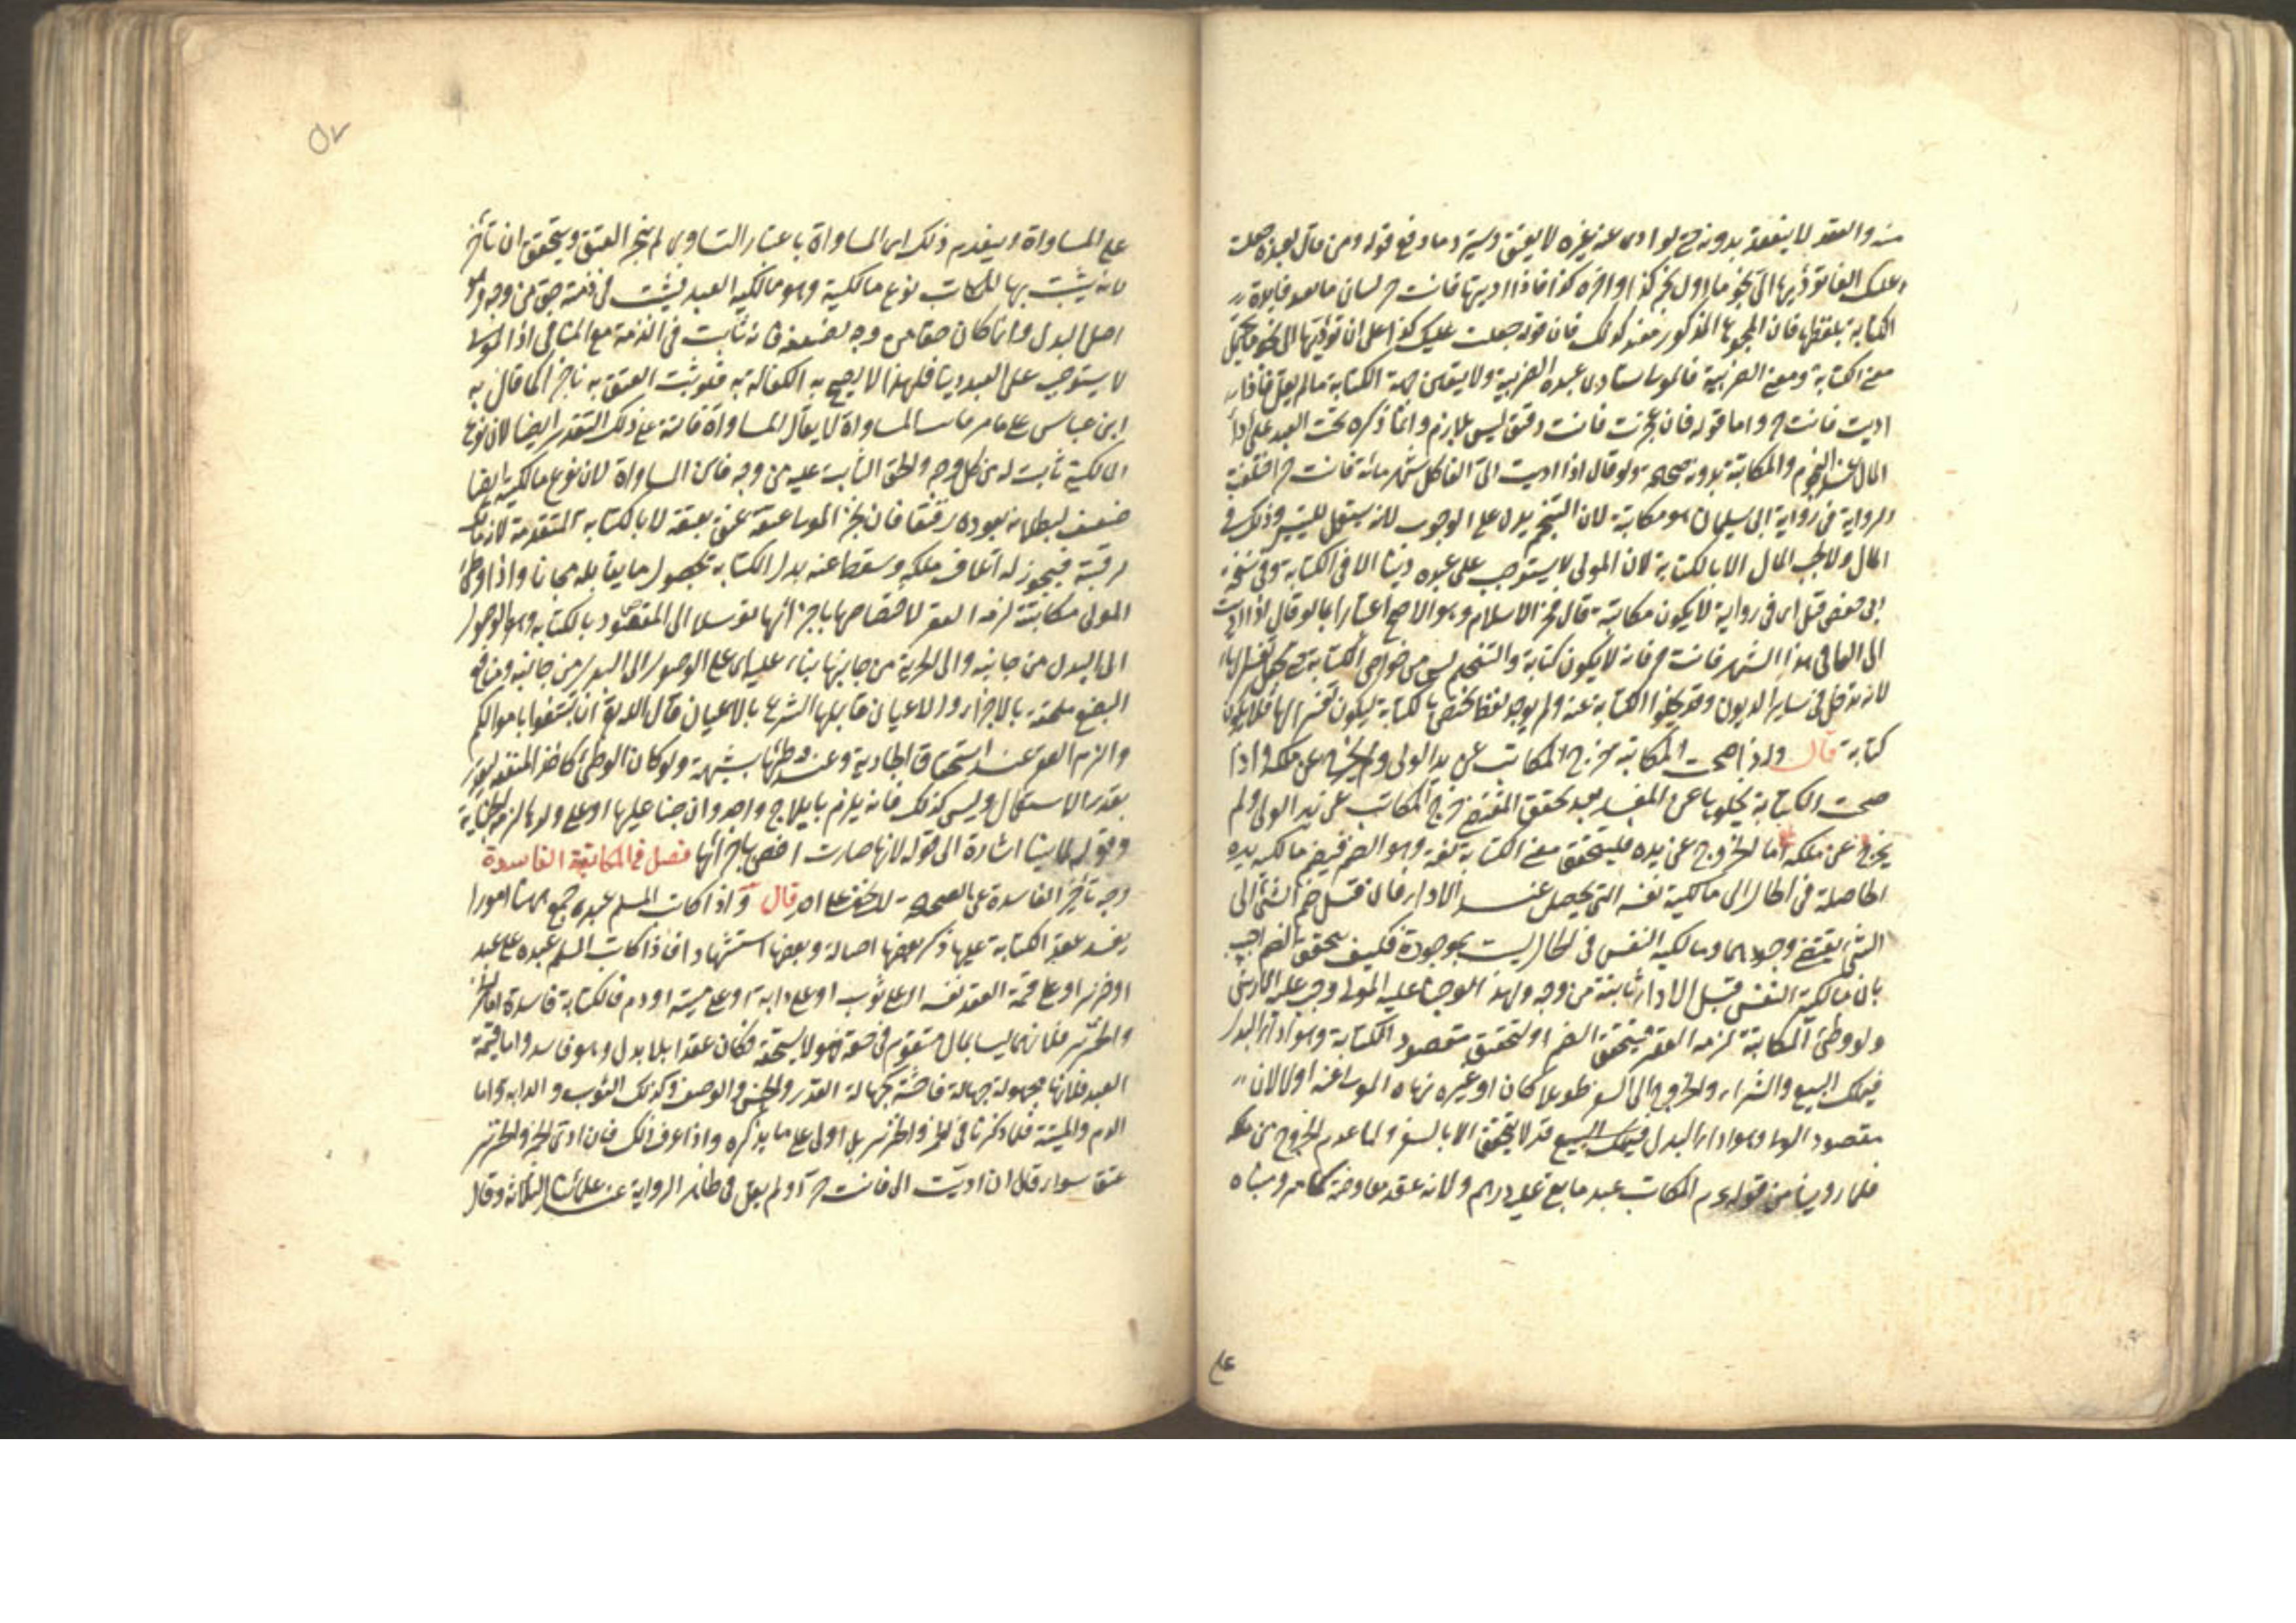 منه والعقد لا ينعقد بدونه حتى لو ادى عنه غيره لا يعتق ويسترد ما دفع قوله ومن قال لعبده جعلت
عليك الفا تؤديها الى نجوما اول نجم كذا واخره كذا فاذا اديتها فانت حر لبيان ما بعد
الكتابة بلفظها فان المجموع المذكور معه كذلك فان قوله جعلت عليك كذا على ان تؤديها الى نجوما يحتمل
معنى الكتابة ومعنى الضريبة فالمولى يستأدى عبده الضريبة ولا يتعين جهة الكتابة ما لم يقل فاذا
اديت فانت حر واما قوله فان عجزت فانت رقيق ليس بلازم وانما ذكره لحث العبد على اداء
المال عند النجوم والمكاتبة بدونه صحيحة ولو قال اذا اديت الى الفا كل شهر مائة فانت حر اختلفت
الرواية في رواية ابى سليمان هو مكاتبة لان التنجيم يدل على الوجوب لانه يستعمل للتيسير وذلك في
المال ولا يجب المال الا بالكتابة لان المولى لا يستوجب على عبده دينا الا في الكتابة وفي نسخة
ابى حفص قيل اى في رواية لا يكون مكاتبة قال فخر الاسلام وهو الاصح اعتبارا بما لو قال اذا اديت
الى الفا في هذا الشهر فانت حر فانه لا يكون كتابة والتنجيم ليس من خواص الكتابة حتى يجعل تفسيرا لها
لانه يدخل في سائر الديون وقد يخلوا الكتابة عنه ولم يوجد لفظ يختص بالكتابة ليكون تفسيرا لها فلا يكون
كتابة قال واذا صحت المكاتبة خرج المكاتب عن يد المولى ولم يخرج عن ملكه اذا
صحت الكتابة بخلوها عن المفسد بعد تحقق المقتضى خرج المكاتب عن يد المولى ولم
يخرج عن ملكه اما الخروج عن يده فليتحقق معنى الكتابة لغة وهو الضم فيضم مالكية يده
الحاصلة في الحال الى مالكية نفسه التى تحصل عند الاداء فان قيل ضم الشئ الى
الشئ يقتضى وجودهما ومالكية النفس في الحال ليست بموجودة فكيف يتحقق الضم اجيب
بان مالكية النفس قبل الاداء ثابتة من وجه ولهذا لو جنى عليه المولى وجب عليه الارش
ولو وطئ المكاتبة لزمه العقر فيتحقق الضم او لتحقيق مقصود الكتابة وهو اداء البدل
فيملك البيع والشراء والخروج الى السفر طويلا كان او غيره نهاه المولى عنه اولا لان
مقصود المولى وهو اداء البدل فيملك البيع قد لا يتحقق الا بالسفر واما عدم الخروج من ملكه
فلما روينا من قوله عم المكاتب عبد ما بقى عليه درهم ولانه عقد معاوضة كما مر ومبناه
على
على المساواة وينعدم ذلك اى المساواة باعتبار التساوى لم بتنجز العتق ويتحقق ان تأخر
لانه يثبت بها للمكاتب نوع مالكية وهو مالكية اليد ويثبت في ذمته حق من وجه وهو
اصل البدل وانما كان حقا من وجه لضعفه فانه ثابت في الذمة مع المنافى اذ المولى
لا يستوجب على العبد دينا فلهذا لا يصح به الكفالة به فلو ثبت العتق به ناجزا كما قال به
ابن عباس على ما مر فاتت المساواة لا يقال المساواة فائتة على ذلك التقدير ايضا لان نوع
المالكية ثابت له من كل وجه والحق الثابت عليه من وجه فاين المساواة لان نوع مالكيته ايضا
ضعيف لبطلانه بعوده رقيقا فان نجز المولى عتقه عتق بعتقه لا بالكتابة المتقدمة لانه مالك
لرقبته فيجوز له اتلاف ملكه وسقط عنه بدل الكتابة بحصول ما يقابله مجانا واذا وطئ
المولى مكاتبته لزمه العقر لاختصاصها باجزائها توسلا الى المقصود بالكتابة وهو الوصول
الى البدل من جانبه والى الحرية من جانبها بناء عليه اى على الوصول الى البدل من جانبه ومنافع
البضع ملحقة بالاجزاء والاعيان قابلها الشرع بالاعيان قال الله تع ان تبتغوا باموالكم
والزم العقر عند استحقاق الجارية وعند وطئها بشبهة ولو كان الوطئ كاخذ المنفعة ليوزع
بقدر الاستكمال وليس كذلك فانه يلزم بايلاج واحد وان جنى عليها او على ولدها لزمه الجناية
وقوله لما بينا اشارة الى قوله لانها صارت اخص باجزائها فصل في المكاتبة الفاسدة
وجه تأخير الفاسدة عن الصحيحة لا يخفى على احد قال واذا كاتب المسلم عبده جمع ههنا امورا
يفسد عقد الكتابة عليها ذكر بعضها اصالة وبعضها استشهادا فاذا كاتب المسلم عبده على عبد
او خنزير او على قيمة العبد نفسه او على ثوب او على دابة او على ميتة او دم فالكتابة فاسدة اما الخمر
والخنزير فلانهما ليسا بمال متقوم في حقه فهو لا يستحقه فكان عقدا بلا بدل وهو فاسد واما قيمة
العبد فلانها مجهولة جهالة فاحشة لجهالة القدر والجنس والوصف وكذلك الثوب والدابة واما
الدم والميتة فلما ذكرنا في الخمر والخنزير بل اولى على ما يذكره واذا عرف ذلك فان ادى الخمر والخنزير
عتق سواء قال ان اديت الى فانت حر او لم يقل في ظاهر الرواية عند علمائنا الثلاثة وقال